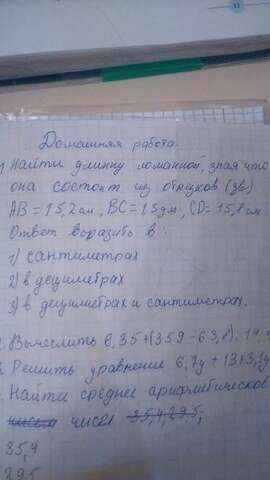 Домашняя работа.
1 Найти длинну ломанной, зная что
она состоит из отрезков (зв)
AB = 15,2 см, BC = 15 дм, CD = 15,8 см.
Ответ выразить в:
1) сантиметрах
2) в дециметрах
3) в дециметрах и сантиметрах.
Вычеслить 6,35+(359-63,8):
Решить уравнение 6,7y + 13+3,1y
Найти среднее арифметическое
чисел чисел 35,4,295,
35,4
295